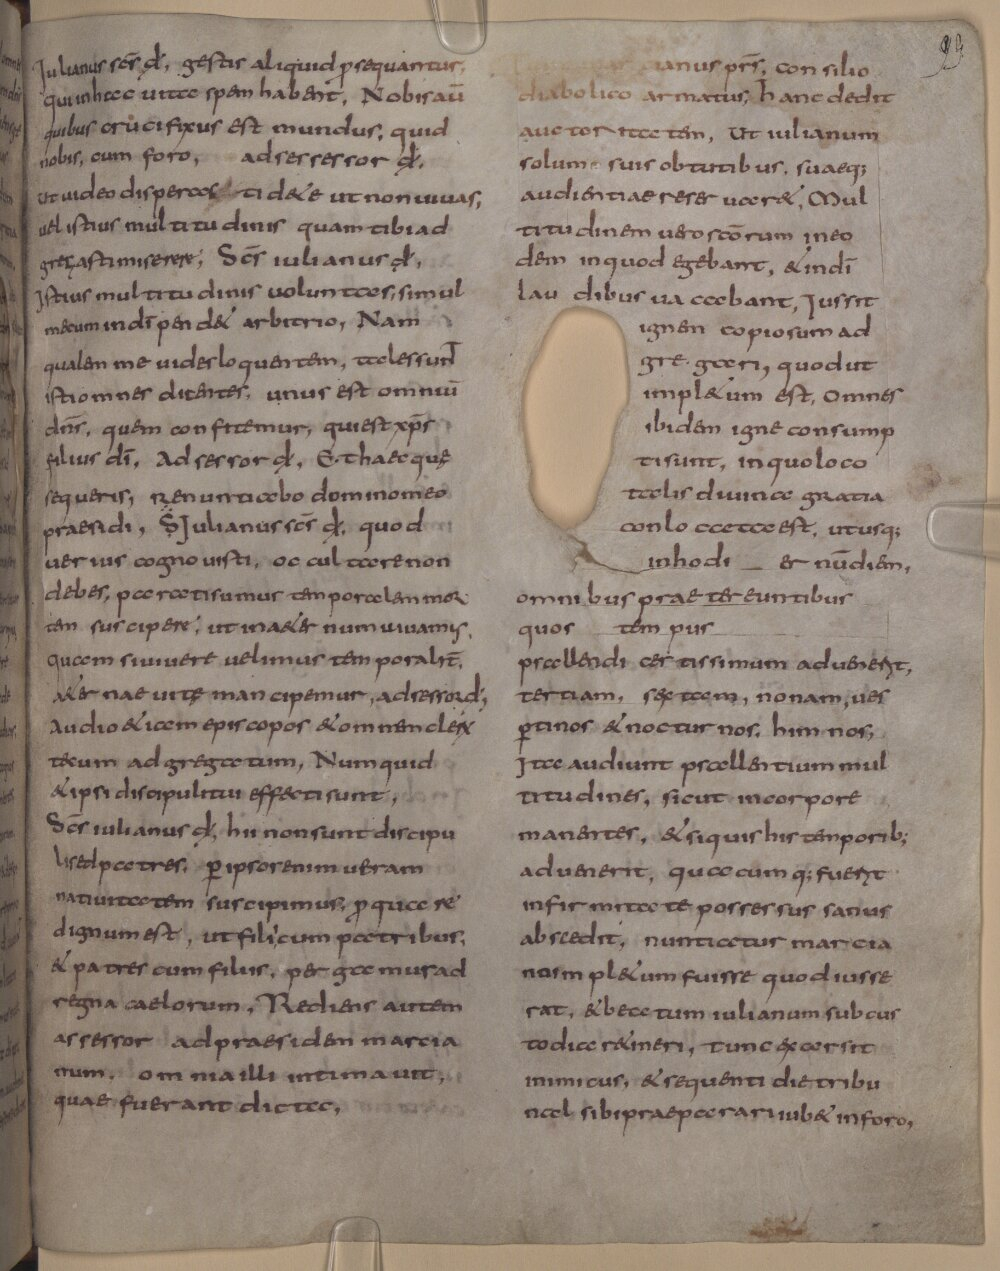 Iulianus scs̄ đ, gestis aliquid ꝑsequantur,
qui inhac uita spem habent, Nobis aū
quibus crucifixus est mundus, quid
nobis, cum foro, adsessessor đ,
ut uideo disperas ti de& ut non uiuas,
uel istius multitudinis quam tibi ad
gregasti miserere, Scs̄ iulianus đ,
Istius multitudinis uoluntas, simul
mecum indī pend& arbitrio, Nam
qualem me uides loquentem, tales sunt
isti omnes dicentes, unus est omniū
dn̄s, quem confitemur, qui est xp̄s
filius dī, Adsessor đ, E thaec quę
sequeris, renuntiabo domino meo
praesidi, S Iulianus scs̄ đ, quod
uerius cognouisti, occultare non
debes, parati sumus temporalem mor
tem suscipere, ut in a&ernum uiuamus,
quam si uiuere uelimus temporalit̄,
a&ernae uitę mancipemur, adsessor đ,
Audio &iam episcopos & omnem clerum
tecum adgregatum, Numquid
& ipsi discipuli tui effecti sunt,
Scs̄ iulianus đ, hii non sunt discipu
li sed patres, ꝑ ipsos enim ueram
natiuitatem suscipimus, ꝓ qua re
dignum est, ut filii cum patribus,
& patres cum filiis, pergamus ad
regna caelorum, Rediens autem
assessor ad praesidem marcia
num, omnia illi intimauit,
quae fuerant dicta,
ianus prs̄, consilio
diabolico armatus, hanc dedit
auctoritatem, Ut iulianum
solum suis obtutibus, suaeq;
audientiae reseruar&, Mul
titudinem uero scōrum in eo
dem in quo degebant, & in dī
laudibus uacabant, Iussit
ignem copiosum ad
gregari, quod ut
impl&um est, Omnes
ibidem igne consump
ti sunt, in quo loco
talis diuina gratia
conlocata est, ut usq;
in hodiernū diem,
omnibus praetereuntibus
quos tempus
psallendi certissimum aduenerit,
tertiam, sextam, nonam, ues
ꝑtinos & nocturnos, himnos,
Ita audiunt psallentium mul
titudines, sicut in corpore
manentes, & si quis his temporib;
aduenerit, quacumq; fuerit
infirmitate possessus sanus
abscedit, nuntiatur marcia
no impl&um fuisse quod iusse
rat, & beatum iulianum sub cus
todia r&ineri, tunc exarsit
inimicus, & sequenti die tribu
nal sibi praeparari iub& in foro,